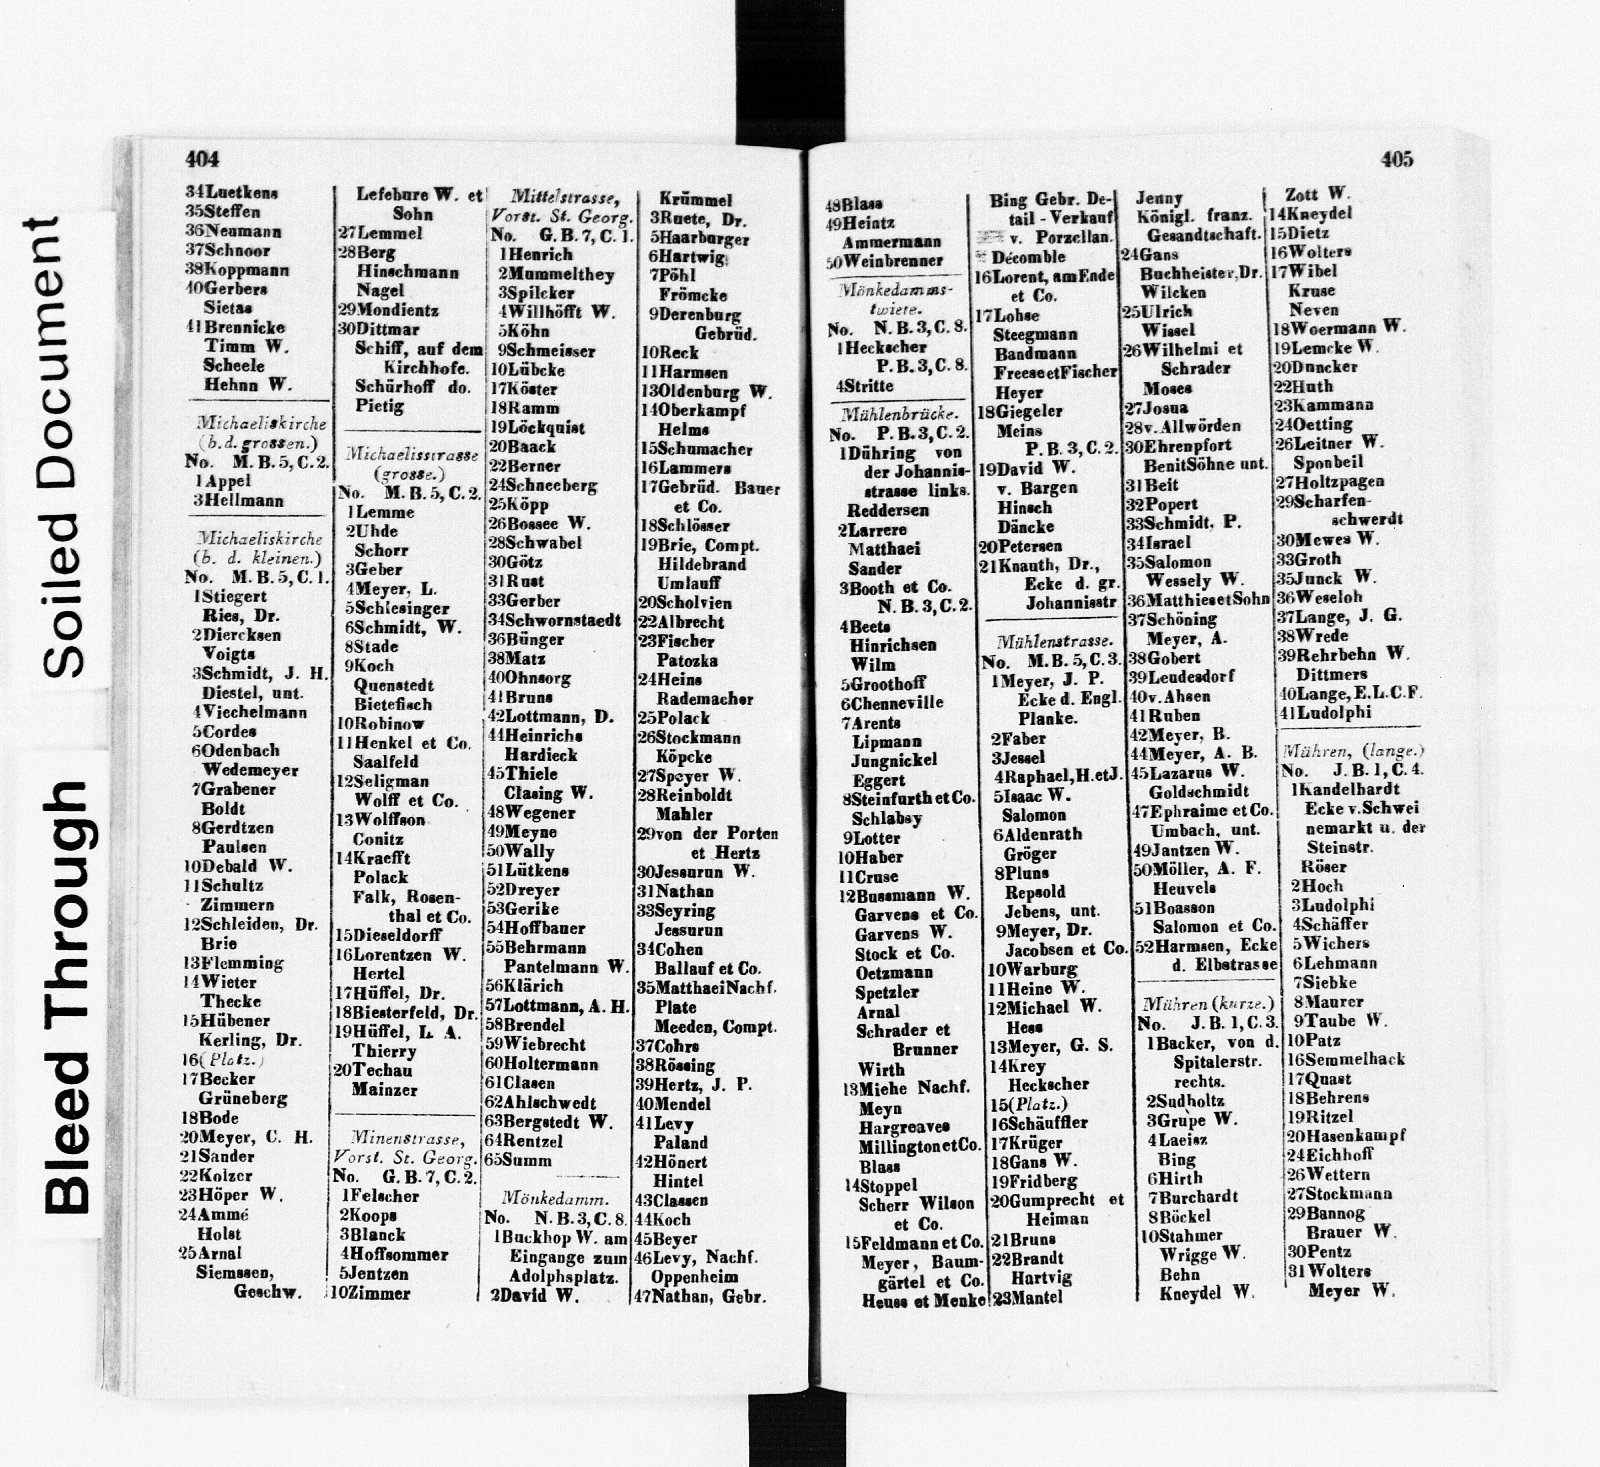 Soiled Document
Bleed Through
404
34 Luetkens
35 Steffen
36 Neumann
37 Schnoor
38 Koppmann
40 Gerbers
Sietas
41 Brennicke
Timm W.
Scheele
Hehnn W.
Michaeliskirche
(b. d. grossen.)
No. M. B. 5, C. 2.
1 Appel
3 Hellmann
Michaeliskirche
(b. d. kleinen.)
No. M. B. 5, C. 1.
1 Stiegert
Ries, Dr.
2 Diercksen
Voigts
3 Schmidt, J. H.
Diestel, unt.
4 Viechelmann
5 Cordes
6 Odenbach
Wedemeyer
7 Grabener
Boldt
8 Gerdtzen
Paulsen
10 Debald W.
11 Schultz
Zimmern
12 Schleiden, Dr.
Brie
13 Flemming
14 Wieter
Thecke
15 Hübener
Kerling, Dr.
16 (Platz.)
17 Becker
Grüneberg
18 Bode
20 Meyer, C. H.
21 Sander
22 Kolzer
23 Höper W.
24 Ammé
Holst
25 Arnal
Siemssen,
Geschw.
Lefebure W. et
Sohn
27 Lemmel
28 Berg
Hinschmann
Nagel
29 Mondientz
30 Dittmar
Schiff, auf dem
Kirchhofe.
Schürhoff do.
Pietig
Michaelisstrasse
(grosse.)
No. M. B. 5, C. 2.
1 Lemme
2 Uhde
Schorr
3 Geber
4 Meyer, L.
5 Schlesinger
6 Schmidt, W.
8 Stade
9 Koch
Quenstedt
Bietefisch
10 Robinow
11 Henkel et Co.
Saalfeld
12 Seligman
Wolff et Co.
13 Wolffson
Conitz
14 Kraefft
Polack
Falk, Rosen-
thal et Co.
15 Dieseldorff
16 Lorentzen W.
Hertel
17 Hüffel, Dr.
18 Biesterfeld, Dr.
19 Hüffel, L. A.
Thierry
20 Techau
Mainzer
Minenstrasse,
Vorst. St. Georg.
No. G. B. 7, C. 2.
1 Felscher
2 Koops
3 Blanck
4 Hoffsommer
5 Jentzen
10 Zimmer
Mittelstrasse,
Vorst. St. Georg.
No. G. B. 7, C. 1.
1 Henrich
2 Mummelthey
3 Spilcker
4 Willhöfft W.
5 Köhn
9 Schmeisser
10 Lübcke
17 Köster
18 Ramm
19 Löckquist
20 Baack
22 Berner
24 Schneeberg
25 Köpp
26 Bossee W.
28 Schwabel
30 Götz
31 Rust
33 Gerber
34 Schwornstaedt
36 Bünger
38 Matz
40 Ohnsorg
41 Bruns
42 Lottmann, D.
44 Heinrichs
Hardieck
45 Thiele
Clasing W.
48 Wegener
49 Meyne
50 Wally
51 Lütkens
52 Dreyer
53 Gerike
54 Hoffbauer
55 Behrmann
Pantelmann W.
56 Klärich
57 Lottmann, A. H.
58 Brendel
59 Wiebrecht
60 Holtermann
61 Clasen
62 Ahlschwedt
63 Bergstedt W.
64 Rentzel
65 Summ
Mönkedamm.
No. N. B. 3, C. 8.
1 Buckhop W. am
Eingange zum
Adolphsplatz.
2 David W.
Krümmel
3 Ruete, Dr.
5 Haarburger
6 Hartwig
7 Pöhl
Frömcke
9 Derenburg
Gebrüd.
10 Reck
11 Harmsen
13 Oldenburg W.
14 Oberkampf
Helms
15 Schumacher
16 Lammers
17 Gebrüd. Bauer
et Co.
18 Schlösser
19 Brie, Compt.
Hildebrand
Umlauff
20 Scholvien
22 Albrecht
23 Fischer
Patozka
24 Heins
Rademacher
25 Polack
26 Stockmann
Köpcke
27 Speyer W.
28 Reinboldt
Mahler
29 von der Porten
et Hertz
30 Jessurun W.
31 Nathan
33 Seyring
Jessurun
34 Cohen
Ballauf et Co.
35 Matthaei Nachf.
Plate
Meeden, Compt.
37 Cohrs
38 Rössing
39 Hertz, J. P.
40 Mendel
41 Levy
Paland
42 Hönert
Hintel
43 Classen
44 Koch
45 Beyer
46 Levy, Nachf.
Oppenheim
47 Nathan, Gebr.
405
48 Blass
49 Heintz
Ammermann
50 Weinbrenner
Mönkedamms-
twiete.
No. N. B. 3, C. 8.
1 Heckscher
P. B. 3, C. 8.
4 Stritte
Mühlenbrücke.
No. P. B. 3, C. 2.
1 Dühring von
der Johannis-
strasse links.
Reddersen
2 Larrere
Matthaei
Sander
3 Booth et Co.
N. B. 3, C. 2.
4 Beets
Hinrichsen
Wilm
5 Groothoff
6 Chenneville
7 Arents
Lipmann
Jungnickel
Eggert
8 Steinfurth et Co.
Schlabsy
9 Lotter
10 Haber
11 Cruse
12 Bussmann W.
Garvens et Co.
Garvens W.
Stock et Co.
Oetzmann
Spetzler
Arnal
Schrader et
Brunner
Wirth
13 Miehe Nachf.
Meyn
Hargreaves
Millington et Co.
Blass
14 Stoppel
Scherr Wilson
et Co.
15 Feldmann et Co.
Meyer, Baum-
gärtel et Co.
Heuss et Menke
Bing Gebr. De-
tail-Verkauf
v. Porzellan.
Décomble
16 Lorent, am Ende
et Co.
17 Lohse
Steegmann
Bandmann
Freese et Fischer
Heyer
18 Giegeler
Meins
P. B. 3, C. 2.
19 David W.
v. Bargen
Hinsch
Däncke
20 Petersen
21 Knauth, Dr.,
Ecke d. gr.
Johannisstr
Mühlenstrasse.
No. M. B. 5, C. 3.
1 Meyer, J. P.
Ecke d. Engl.
Planke.
2 Faber
3 Jessel
4 Raphael, H. et J.
5 Isaac W.
Salomon
6 Aldenrath
Gröger
8 Pluns
Repsold
Jebens, unt.
9 Meyer, Dr.
Jacobsen et Co.
10 Warburg
11 Heine W.
12 Michael W.
Hess
13 Meyer, G. S.
14 Krey
Heckscher
15 (Platz.)
16 Schäuffler
17 Krüger
18 Gans W.
19 Fridberg
20 Gumprecht et
Heiman
21 Bruns
22 Brandt
Hartvig
23 Mantel
Jenny
Königl. franz.
Gesandtschaft.
24 Gans
Buchheister, Dr.
Wilcken
25 Ulrich
Wissel
26 Wilhelmi et
Schrader
Moses
27 Josua
28 v. Allwörden
30 Ehrenpfort
Benit Söhne unt.
31 Beit
32 Popert
33 Schmidt, P.
34 Israel
35 Salomon
Wessely W.
36 Matthies et Sohn
37 Schöning
Meyer, A.
38 Gobert
39 Leudesdorf
40 v. Ahsen
41 Ruben
42 Meyer, B.
44 Meyer, A. B.
45 Lazarus W.
Goldschmidt
47 Ephraim et Co.
Umbach, unt.
49 Jantzen W.
50 Möller, A. F.
Heuvels
51 Boasson
Salomon et Co.
52 Harmsen, Ecke
d. Elbstrasse
Mühren (kurze.)
No. J. B. 1, C. 3.
1 Backer, von d.
Spitalerstr.
rechts.
2 Sudholtz
3 Grupe W.
4 Laeisz
Bing
6 Hirth
7 Burchardt
8 Böckel
10 Stahmer
Wrigge W.
Behn
Kneydel W.
Zott W.
14 Kneydel
15 Dietz
16 Wolters
17 Wibel
Kruse
Neven
18 Woermann W.
19 Lemcke W.
20 Duncker
22 Huth
23 Kammann
24 Oetting
26 Leitner W.
Sponbeil
27 Holtzpagen
29 Scharfen-
schwerdt
30 Mewes W.
33 Groth
35 Junck W.
36 Weseloh
37 Lange, J. G.
38 Wrede
39 Rehrbehn W.
Dittmers
40 Lange, E. L. C. F.
41 Ludolphi
Mühren, (lange.)
No. J. B. 1, C. 4.
1 Kandelhardt
Ecke v. Schwei
nemarkt u. der
Steinstr.
Röser
2 Hoch
3 Ludolphi
4 Schäffer
5 Wichers
6 Lehmann
7 Siebke
8 Maurer
9 Taube W.
10 Patz
16 Semmelhack
17 Quast
18 Behrens
19 Ritzel
20 Hasenkampf
24 Eichhoff
26 Wettern
27 Stockmann
29 Bannog
Brauer W.
30 Pentz
31 Wolters
Meyer W.